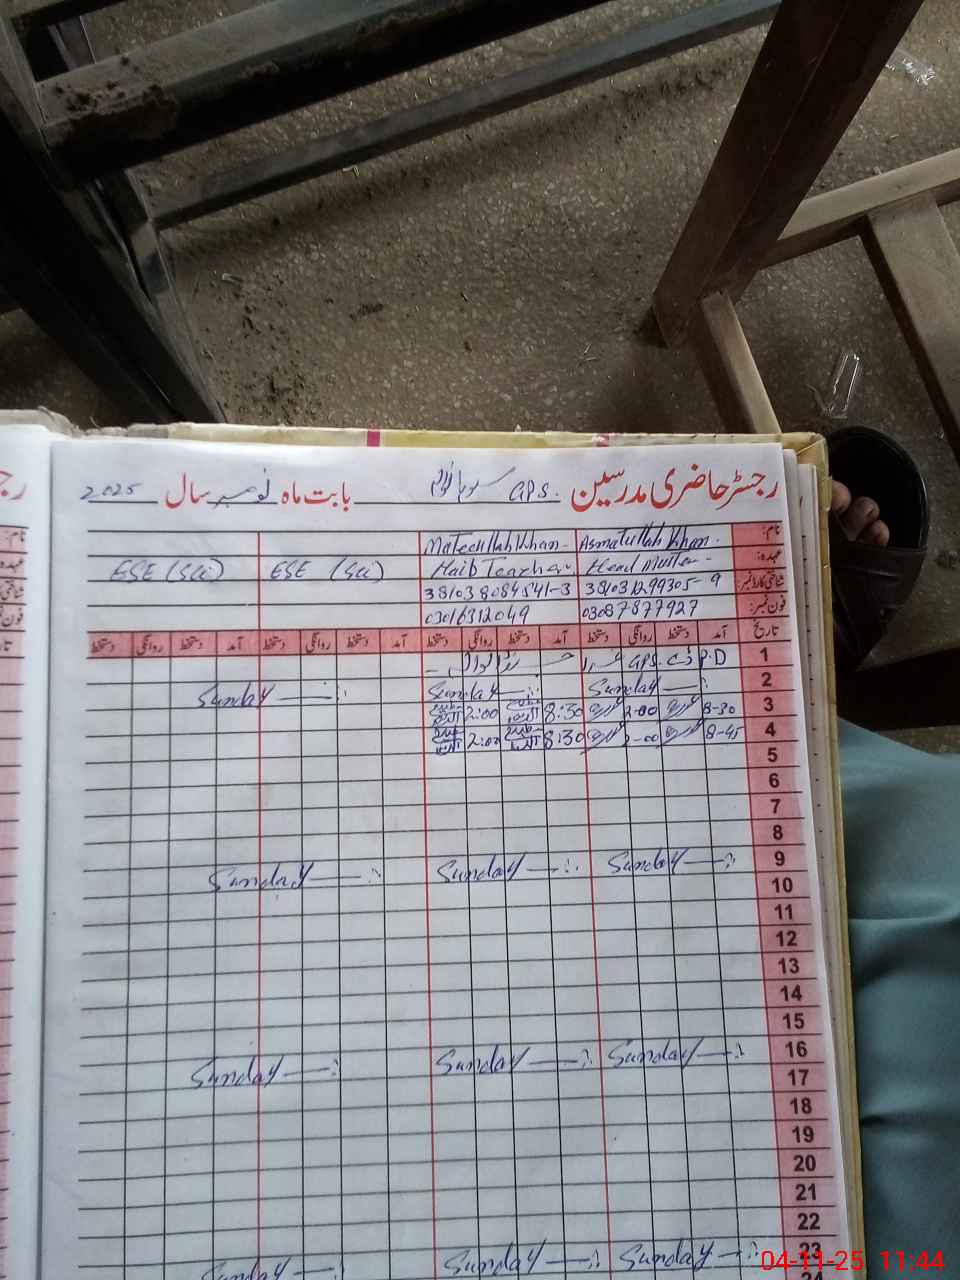 رجسٹر حاضری مدرسین GPS. بابت ماہ نومبر سال 2025
نام: Asmatullah Khan. Mateeullah Khan.
عہدہ: Head Master Naib Teacher ESE (Sci) ESE (Sci)
شناختی کارڈ نمبر: 38103 8084541-3
فون نمبر: 03087877927 03016312049
تاریخ آمد دستخط روانگی دستخط آمد دستخط روانگی دستخط آمد دستخط روانگی دستخط آمد دستخط روانگی دستخط
1 P.D GPS.
2 Sunday Sunday Sunday
3 8-30 2-00 8:30 2:00
4 8-45 2-00 8:30 2:00
5
6
7
8
9 Sunday Sunday Sunday
10
11
12
13
14
15
16 Sunday Sunday Sunday
17
18
19
20
21
22
23 Sunday Sunday Sunday
24
04-11-25 11:44